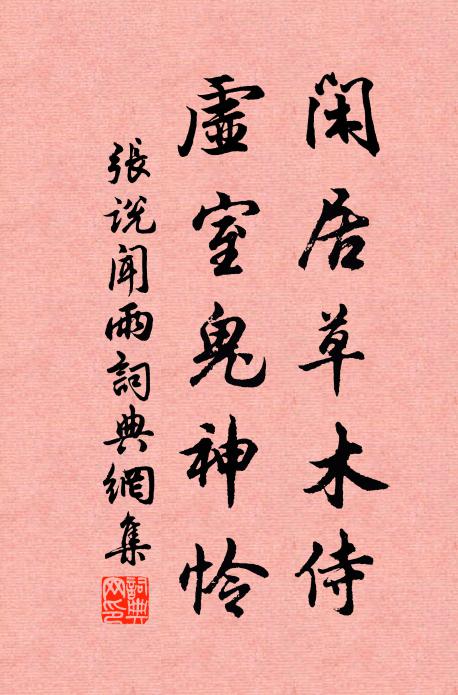 闲居草木侍
虚室鬼神怜
張說聞雨詞典網集
詞典网印